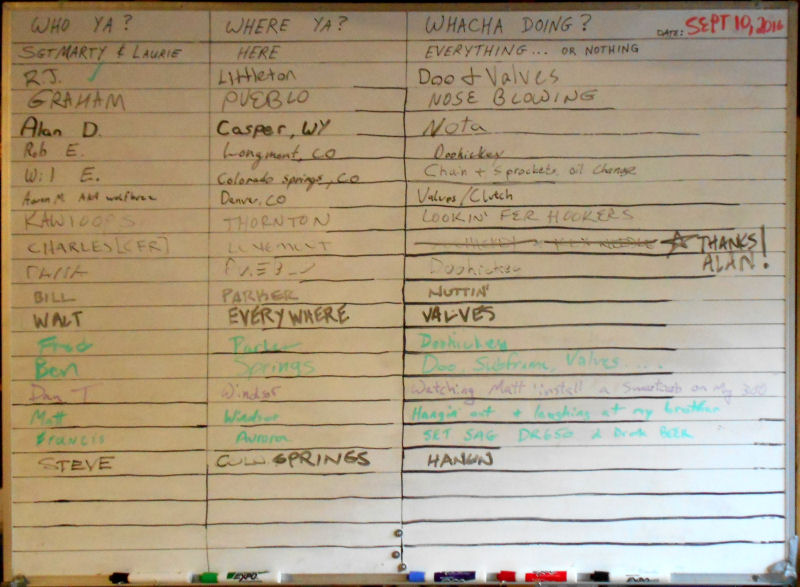 WHO YA? WHERE YA? WHACHA DOING? DATE: SEPT 10, 2016
SGT MARTY & LAURIE HERE EVERYTHING... OR NOTHING
R.J. Littleton Doo & Valves
GRAHAM PUEBLO NOSE BLOWING
Alan D. Casper, WY Nota
Rob E. Longmont, CO Doohickey
Wil E. Colorado Springs, CO Chain + Sprockets, oil change
Aaron M. AKA Denver, CO Valves/Clutch
KAWIOOPS THORNTON LOOKIN' FER HOOKERS
CHARLES [CFR] THANKS
ALAN!
Doohickey
BILL PARKER NUTTIN'
WALT EVERYWHERE VALVES
Fred Parker Doohickey
Ben Springs Doo, Subframe, Valves....
Dan T Windsor Watching Matt install a on my
Matt Windsor Hangin out + laughing at my brother
Francis Aurora SET SAG DR650 & Drink BEER
STEVE COLO. SPRINGS HANGIN
EXPO